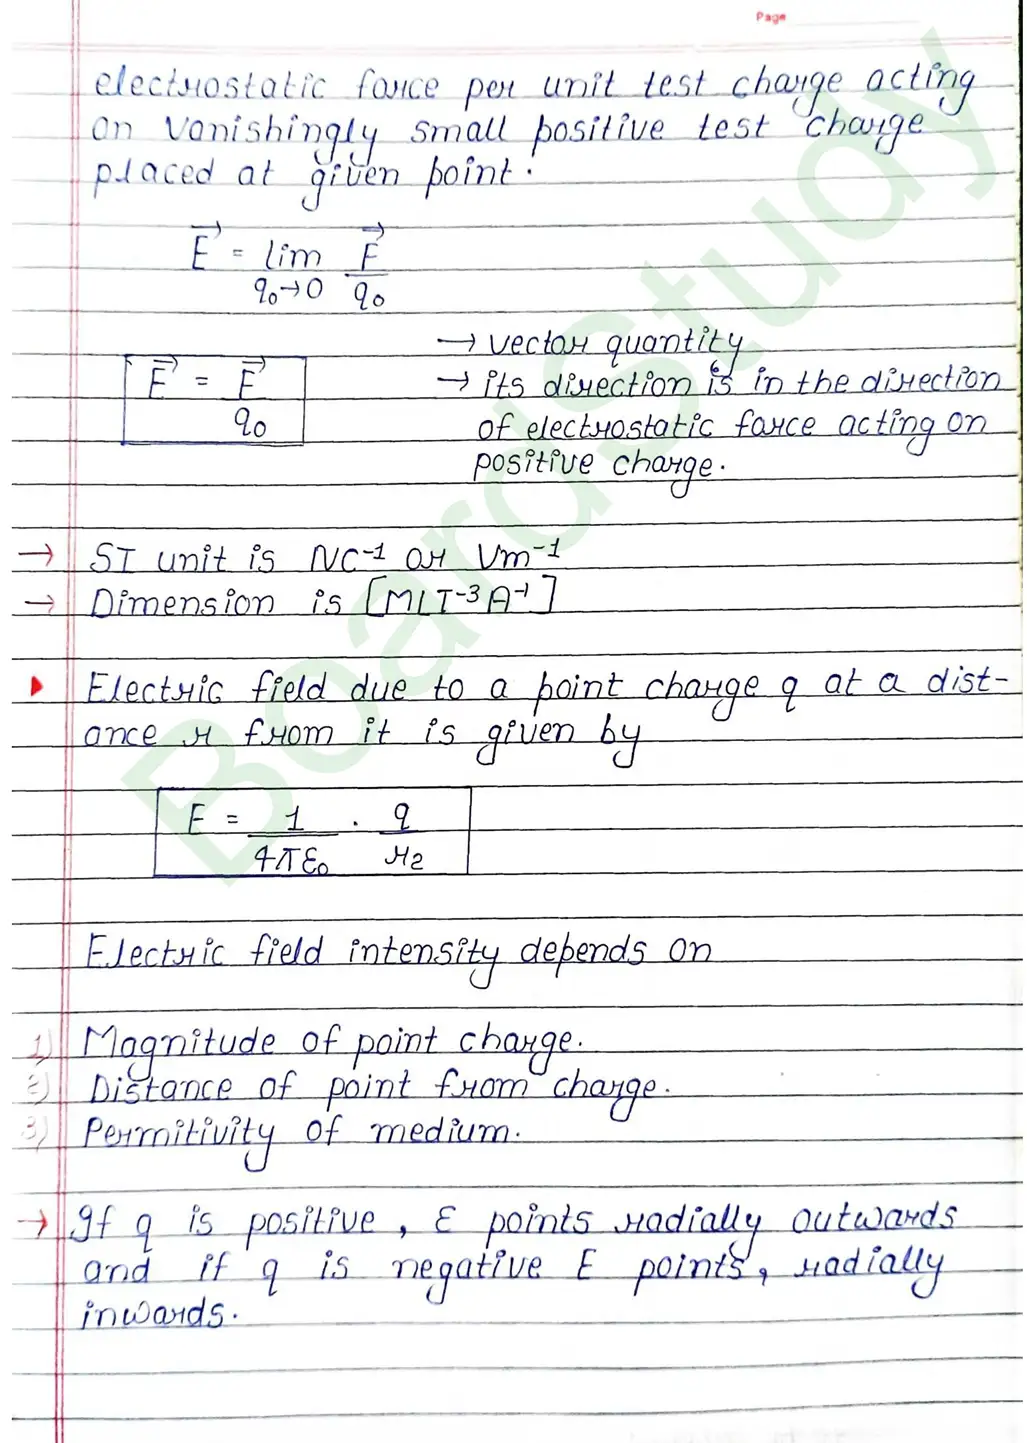 Page
electrostatic force per unit test charge acting
on vanishingly small positive test charge
placed at given point.
E⃗ = lim F⃗
q₀→0 q₀
→ vector quantity
E⃗ = F⃗
q₀
→ its direction is in the direction
of electrostatic force acting on
positive charge.
→ SI unit is NC⁻¹ or Vm⁻¹
→ Dimension is [MLT⁻³A⁻¹]
Electric field due to a point charge q at a dist-
ance r from it is given by
E = 1 . q
4πε₀ r2
Electric field intensity depends on
1) Magnitude of point charge.
2) Distance of point from charge.
3) Permitivity of medium.
→ If q is positive, E points radially outwards
and if q is negative E points, radially
inwards.
BoardStudy